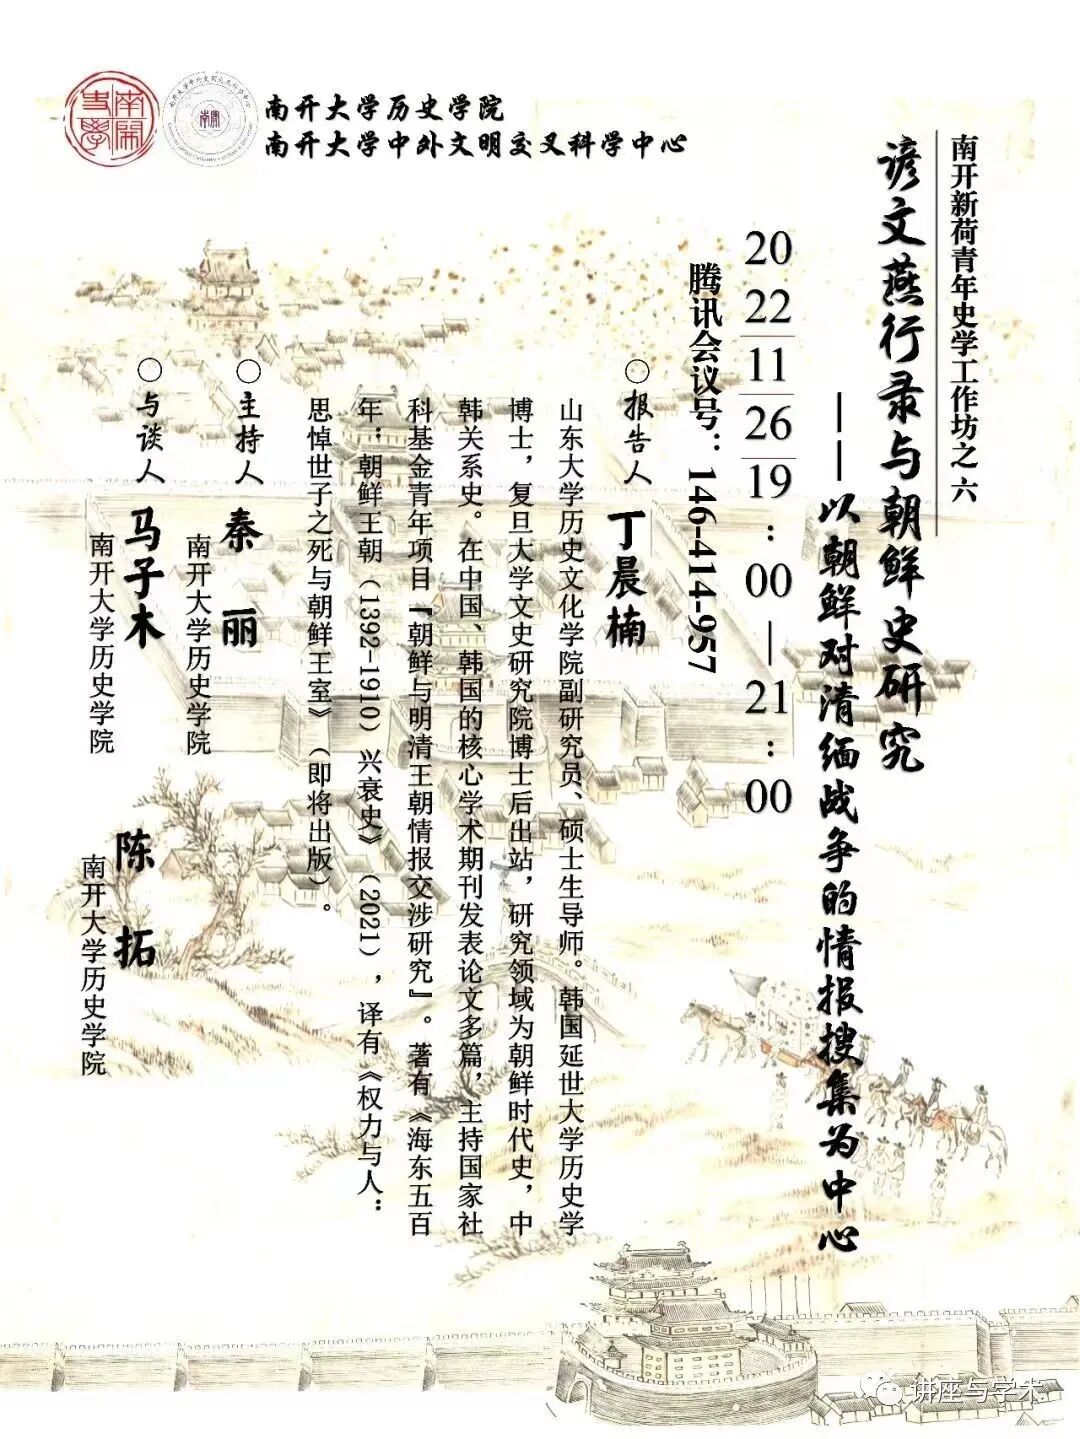 南开大学历史学院
南开大学中外文明交叉科学中心
南开新荷青年史学工作坊之六
谚文燕行录与朝鲜史研究
——以朝鲜对清缅战争的情报搜集为中心
20
22
11
26
19:00—21:00
腾讯会议号：146-414-957
○报告人 丁晨楠
山东大学历史文化学院副研究员、硕士生导师。韩国延世大学历史学
博士，复旦大学文史研究院博士后出站，研究领域为朝鲜时代史，中
韩关系史。在中国、韩国的核心学术期刊发表论文多篇，主持国家社
科基金青年项目『朝鲜与明清王朝情报交涉研究』。著有《海东五百
年：朝鲜王朝（1392-1910）兴衰史》（2021），译有《权力与人：
思悼世子之死与朝鲜王室》（即将出版）。
○主持人 秦丽
南开大学历史学院
○与谈人 马子木
南开大学历史学院
陈拓
南开大学历史学院
南開史學
讲座与学术